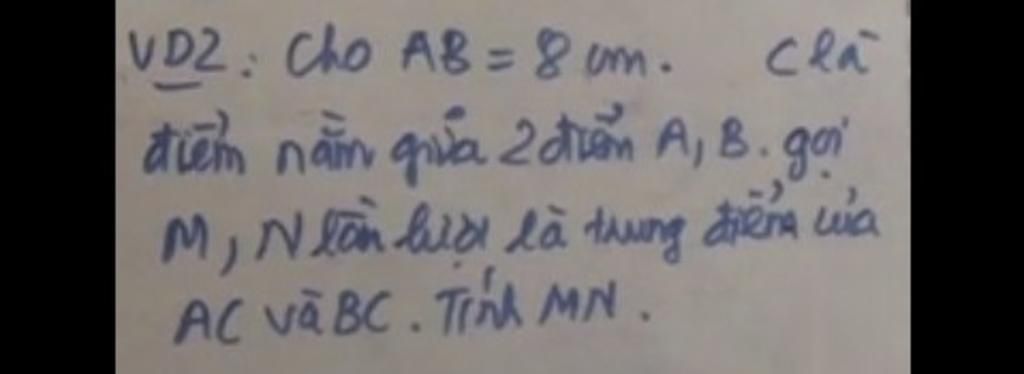 VD2: Cho AB = 8 cm. C là
điểm nằm giữa 2 điểm A, B. gọi
M, N lần lượt là trung điểm của
AC và BC. Tính MN.